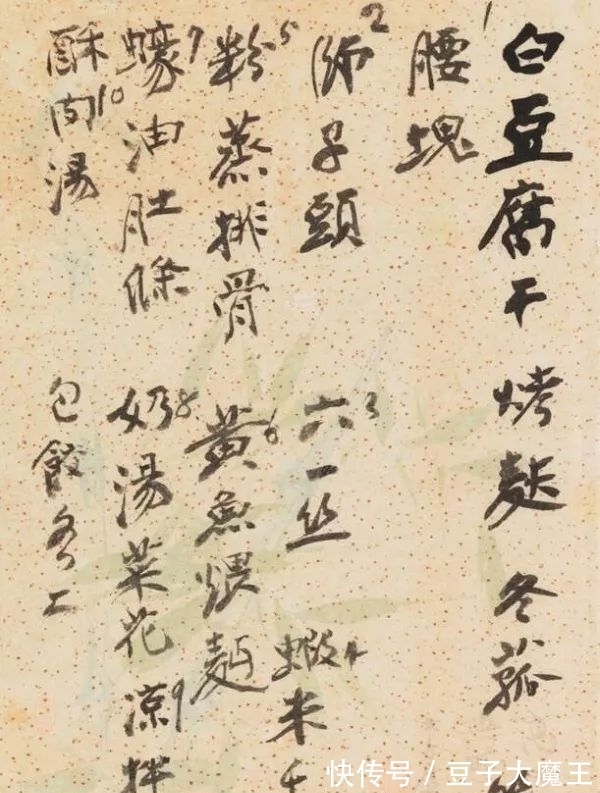 白豆腐干 烤麩 冬菰
1 腰塊
2 師子頭 3 六一丝 4 蝦米
5 粉蒸排骨 6 黄魚煨麪
7 蠔油肚條 8 奶湯菜花 9 凉拌
10 酥肉湯 包餃
快传号 / 豆子大魔王